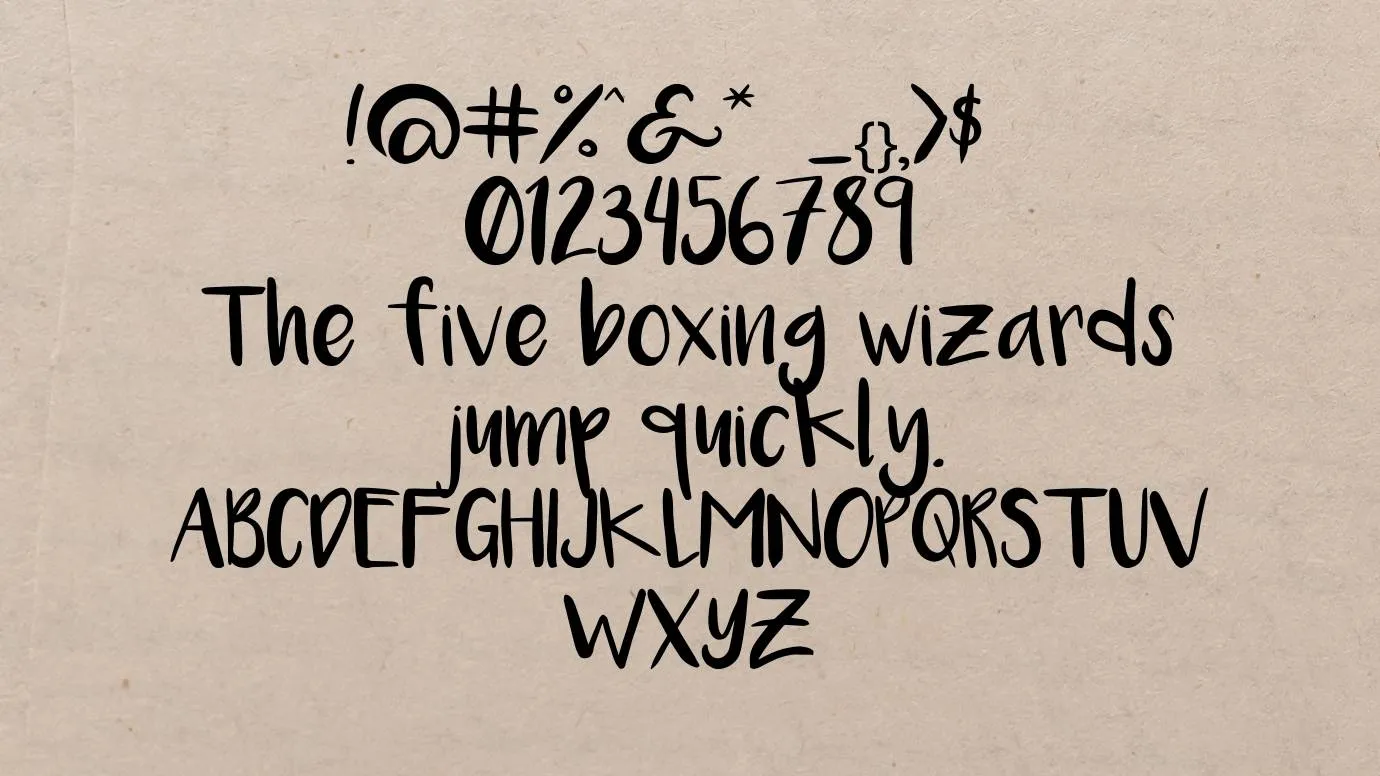 !@#%^&* _{},>$
0123456789
The five boxing wizards
jump quickly.
ABCDEFGHIJKLMNOPQRSTUV
WXYZ